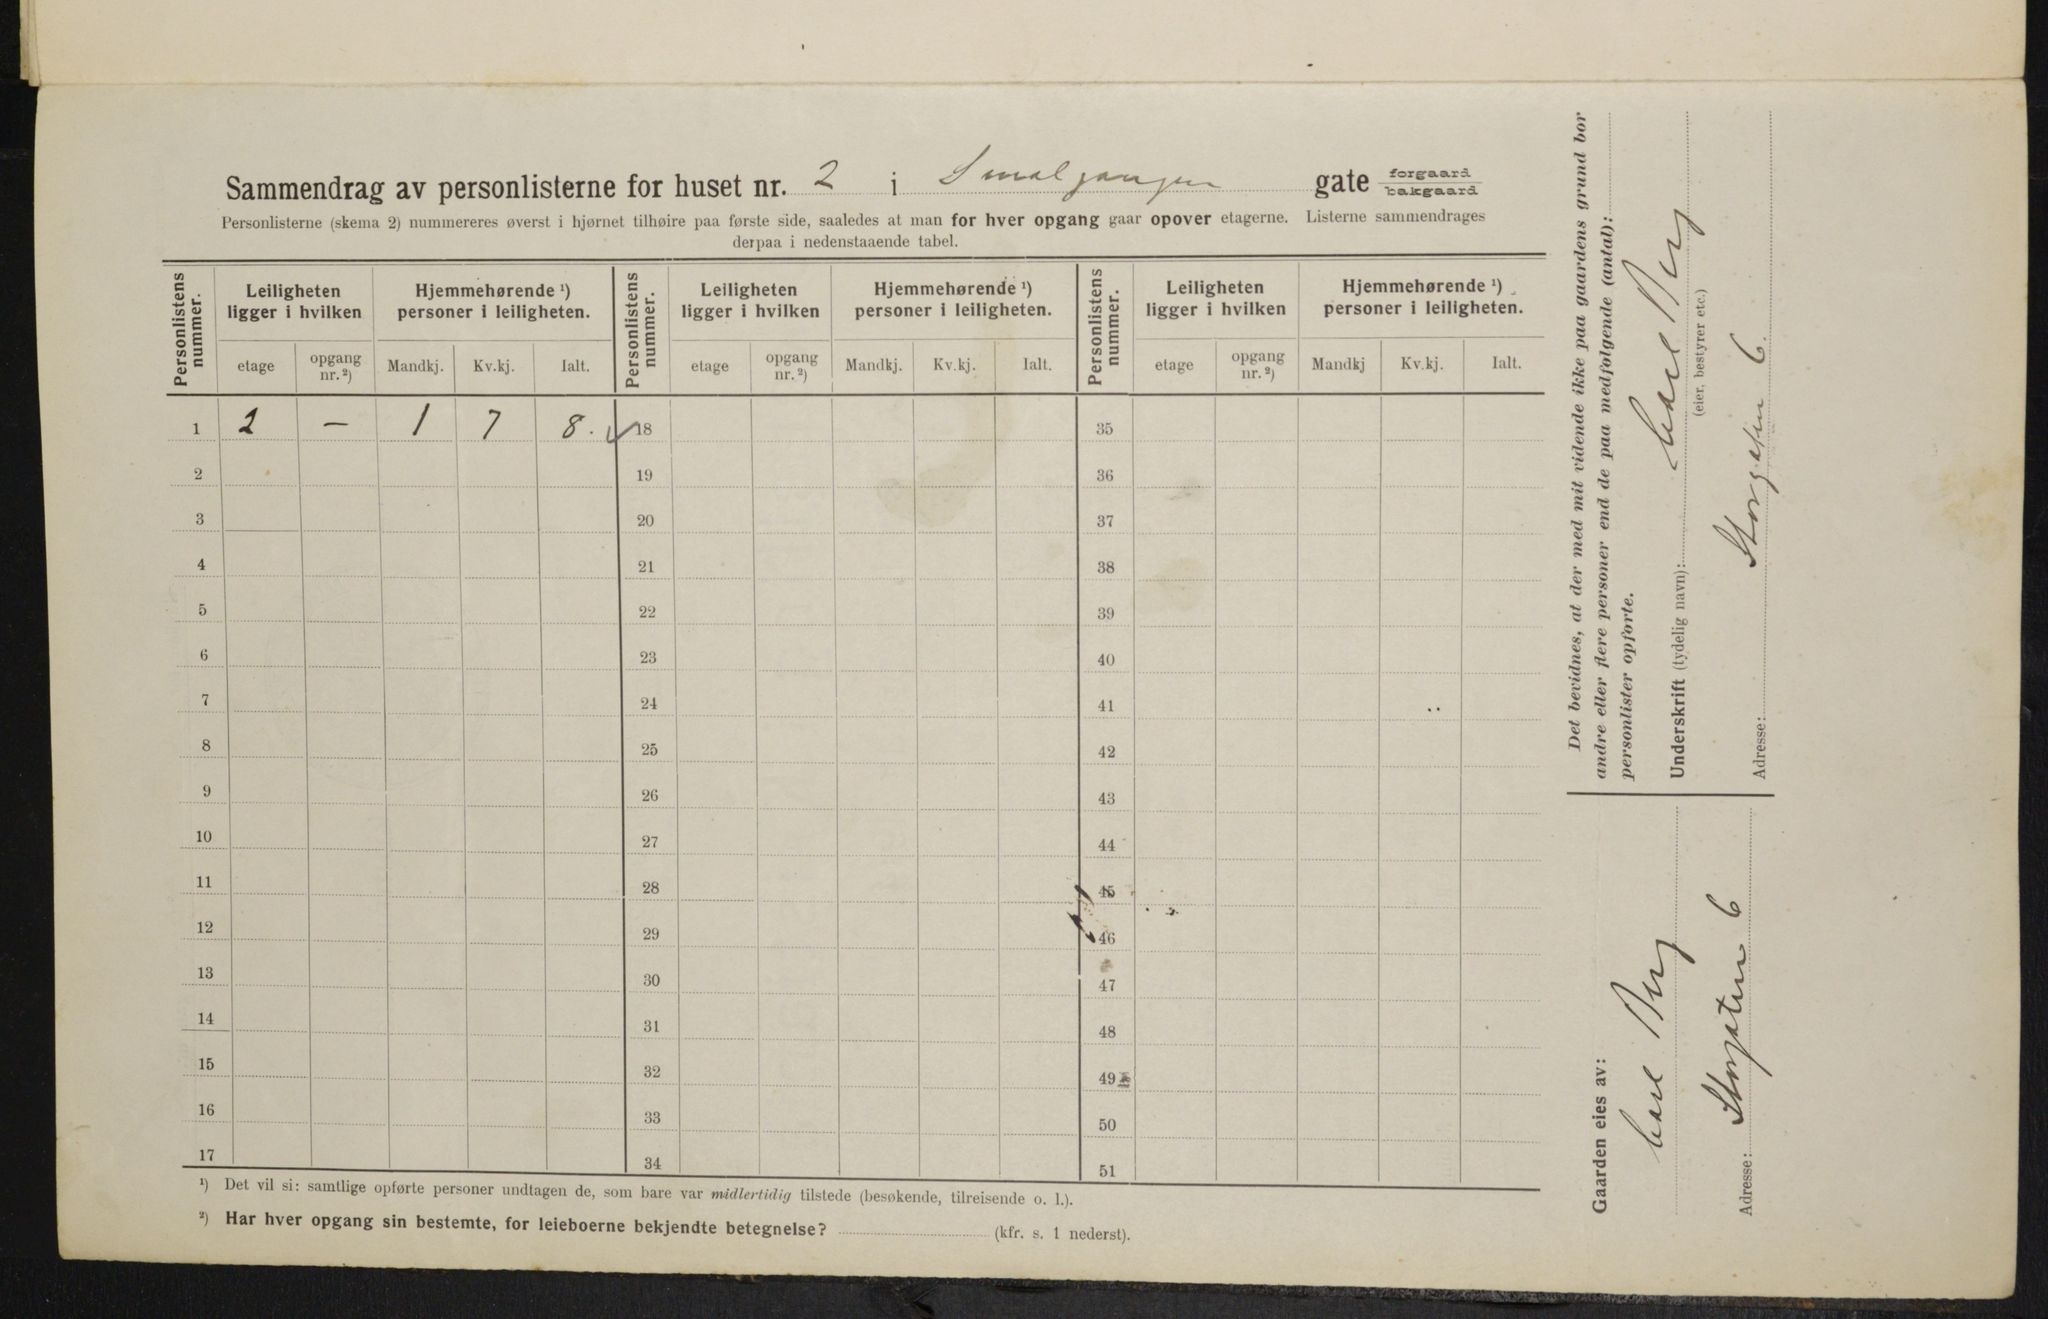 Sammendrag av personlisterne for huset nr. 2 i Smalgangen gate forgaard bakgaard
Personlisterne (skema 2) nummereres øverst i hjørnet tilhøire paa første side, saaledes at man for hver opgang gaar opover etagerne. Listerne sammendrages
derpaa i nedenstaaende tabel.
Personlistens nummer. Leiligheten ligger i hvilken Hjemmehørende ¹) personer i leiligheten. Personlistens nummer. Leiligheten ligger i hvilken Hjemmehørende ¹) personer i leiligheten. Personlistens nummer. Leiligheten ligger i hvilken Hjemmehørende ¹) personer i leiligheten.
etage opgang nr. ²) Mandkj. Kv.kj. Ialt. etage opgang nr. ²) Mandkj. Kv.kj. Ialt. etage opgang nr. ²) Mandkj Kv.kj. Ialt.
1 2 — 1 7 8. 18 35
2 19 36
3 20 37
4 21 38
5 22 39
6 23 40
7 24 41
8 25 42
9 26 43
10 27 44
11 28 45
12 29 46
13 30 47
14 31 48
15 32 49
16 33 50
17 34 51
¹) Det vil si: samtlige opførte personer undtagen de, som bare var midlertidig tilstede (besøkende, tilreisende o. l.).
²) Har hver opgang sin bestemte, for leieboerne bekjendte betegnelse? (kfr. s. 1 nederst).
Det bevidnes, at der med mit vidende ikke paa gaardens grund bor
andre eller flere personer end de paa medfølgende (antal):
personlister opførte.
Underskrift (tydelig navn): Carl Berg
(eier, bestyrer etc.)
Adresse: Storgaten 6.
Gaarden eies av:
Carl Berg
Adresse: Storgaten 6